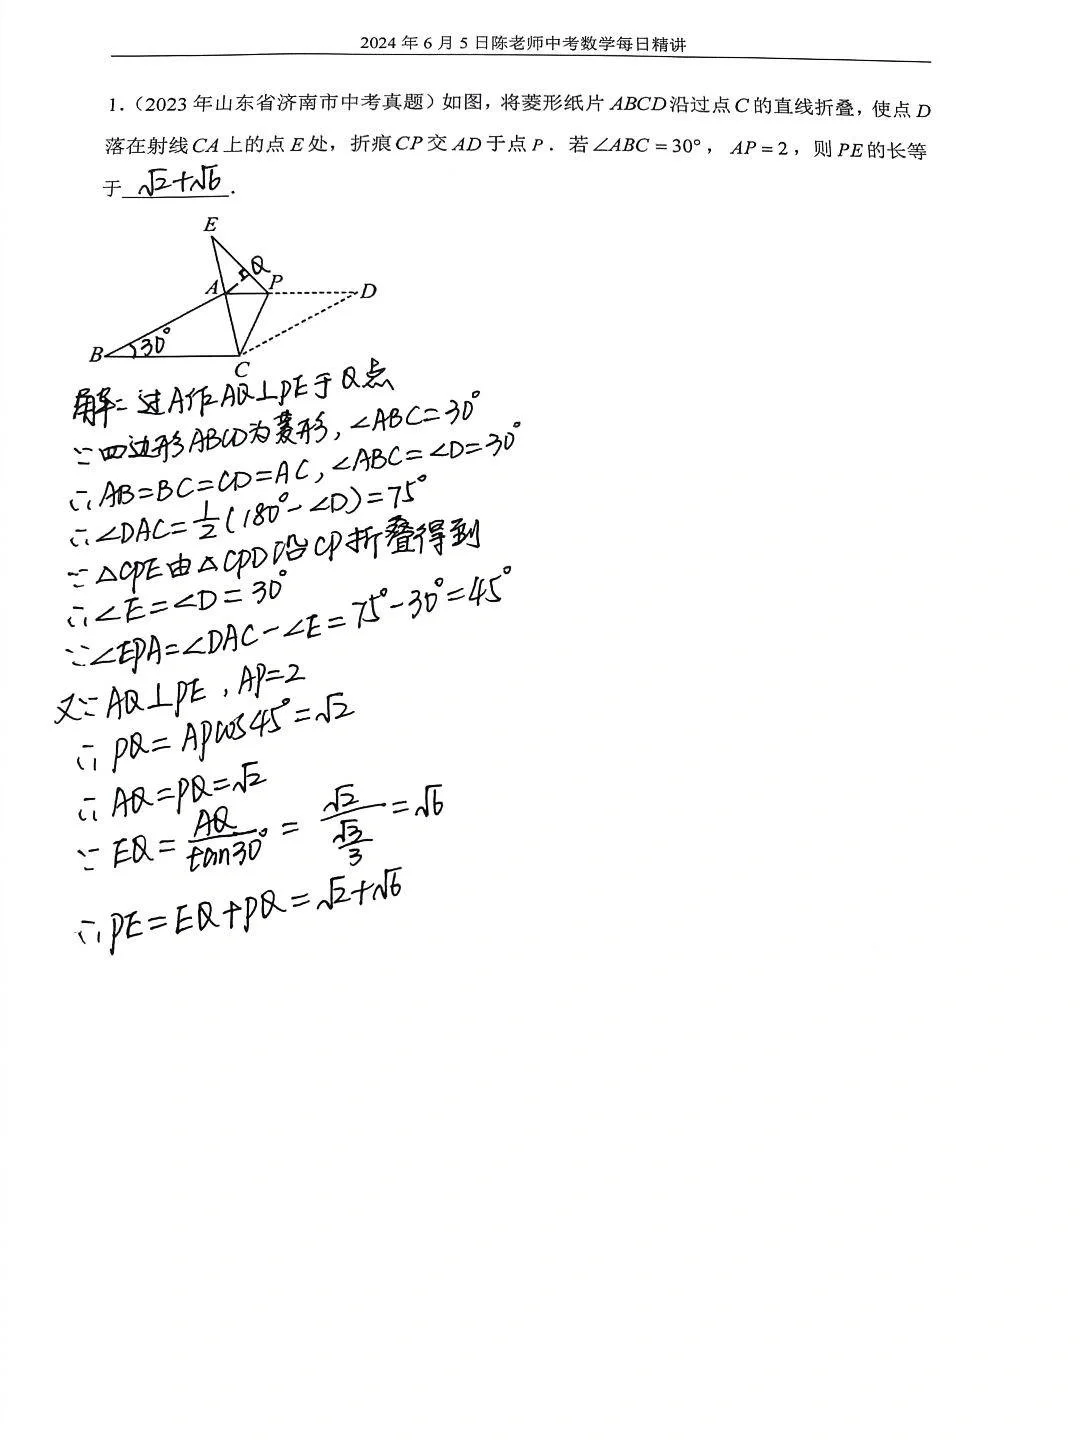 2024 年 6 月 5 日陈老师中考数学每日精讲
1.（2023 年山东省济南市中考真题）如图，将菱形纸片 ABCD 沿过点 C 的直线折叠，使点 D
落在射线 CA 上的点 E 处，折痕 CP 交 AD 于点 P．若 ∠ABC = 30°， AP = 2，则 PE 的长等
于 √2+√6 ．
E
Q
A P D
30°
B
C
解：过A作AQ⊥PE于Q点
∵四边形ABCD为菱形，∠ABC=30°
∴AB=BC=CD=AC，∠ABC=∠D=30°
∴∠DAC=1/2(180°-∠D)=75°
∵△CPE由△CPD沿CP折叠得到
∴∠E=∠D=30°
∵∠EPA=∠DAC-∠E=75°-30°=45°
又∵AQ⊥PE，AP=2
∴PQ=APcos45°=√2
∴AQ=PQ=√2
∵EQ=AQ/tan30°=√2/(√3/3)=√6
∴PE=EQ+PQ=√2+√6